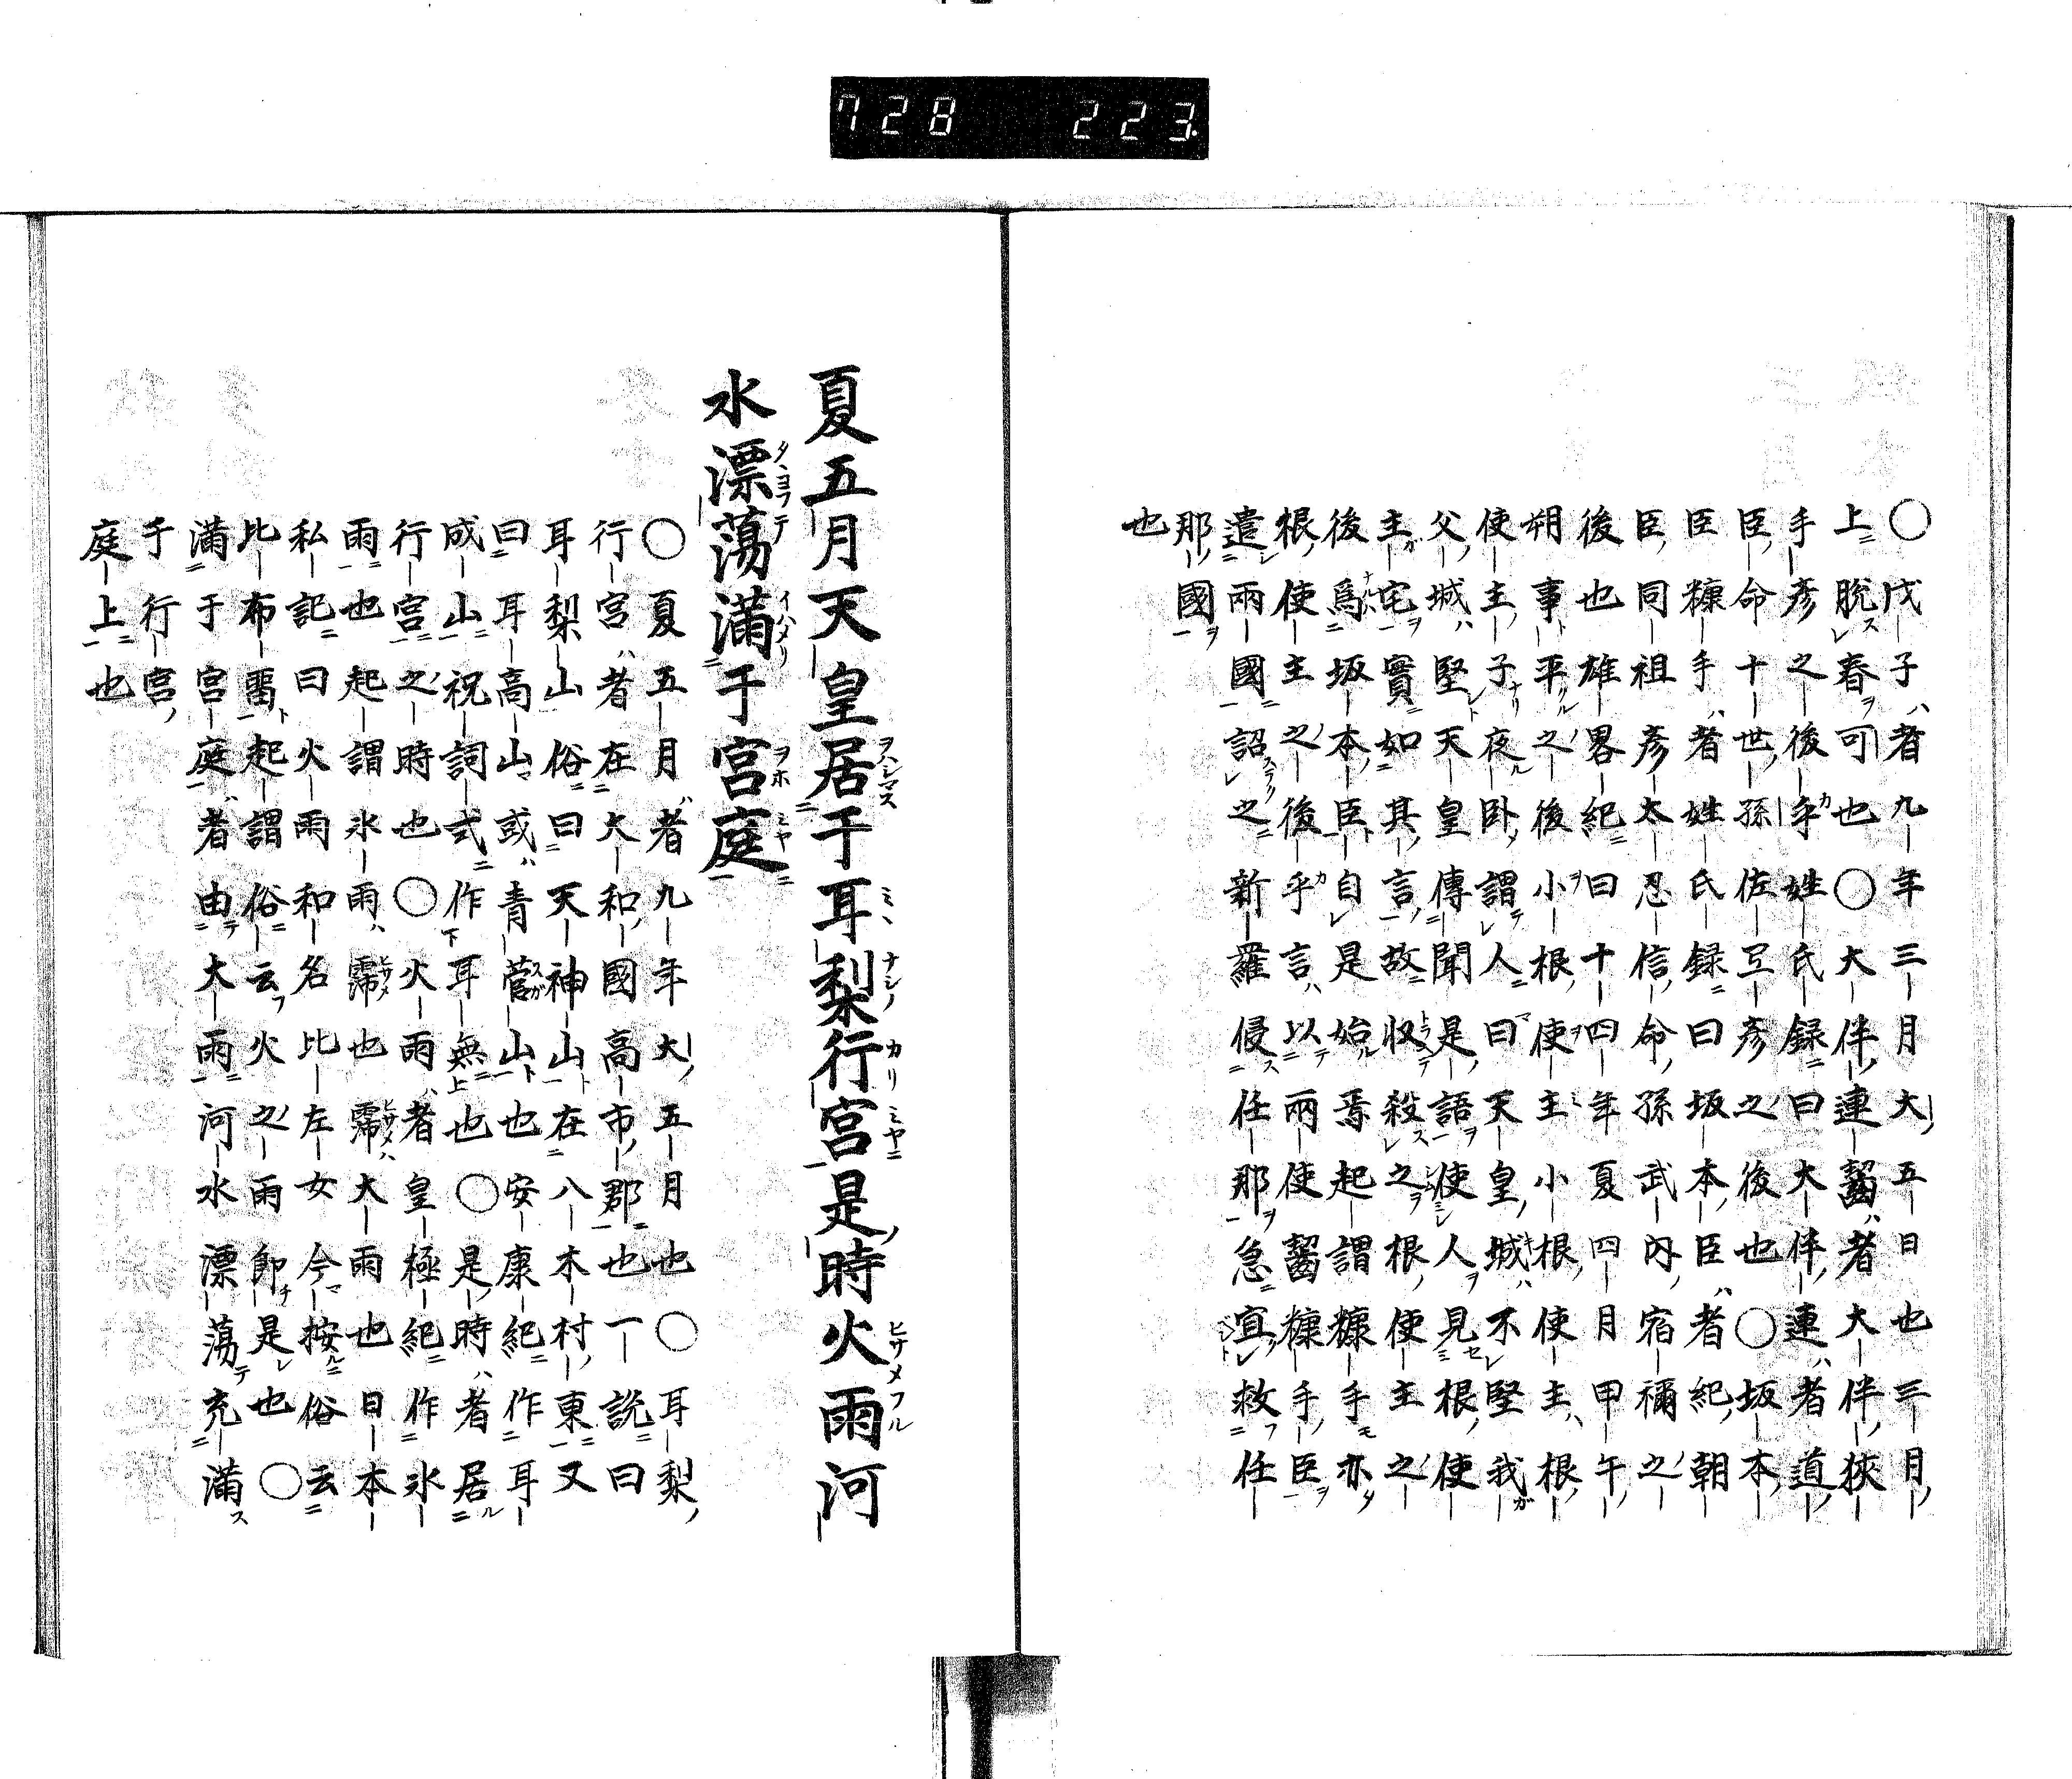 728 223
○戊子者九年三月大五日也三月
上脱春可也○大伴連齧者大伴狹
手彦之後乎姓氏録曰大伴連者道
臣命十世孫佐弖彦之後也○坂本
臣糠手者姓氏録曰坂本臣者紀朝
臣同祖彦太忍信命孫武内宿禰之
後也雄畧紀曰十四年夏四月甲午
朔事平之後小根使主小根使主根
使主子夜卧謂人曰天皇城不堅我
父城堅天皇傳聞是語使人見根使
主宅實如其言故収殺之根使主之
後爲坂本臣自是始焉起謂糠手亦
根使主之後乎言以兩使齧糠手臣
遣兩國詔之新羅侵任那急宜救任
那國
也
夏五月天皇居于耳梨行宮是時火雨河
水漂蕩滿于宮庭
○夏五月者九年大五月也○耳梨
行宮者在大和國高市郡也一説曰
耳梨山俗曰天神山在八木村東又
曰耳高山或青菅山也安康紀作耳
成山祝詞式作耳無也○是時者居
行宮之時也○火雨者皇極紀作氷
雨也起謂氷雨霈也霈大雨也日本
私記曰火雨和名比左女今按俗云
比布畱起謂俗云火之雨即是也○
滿于宮庭者由大雨河水漂蕩充滿
于行宮
庭上也